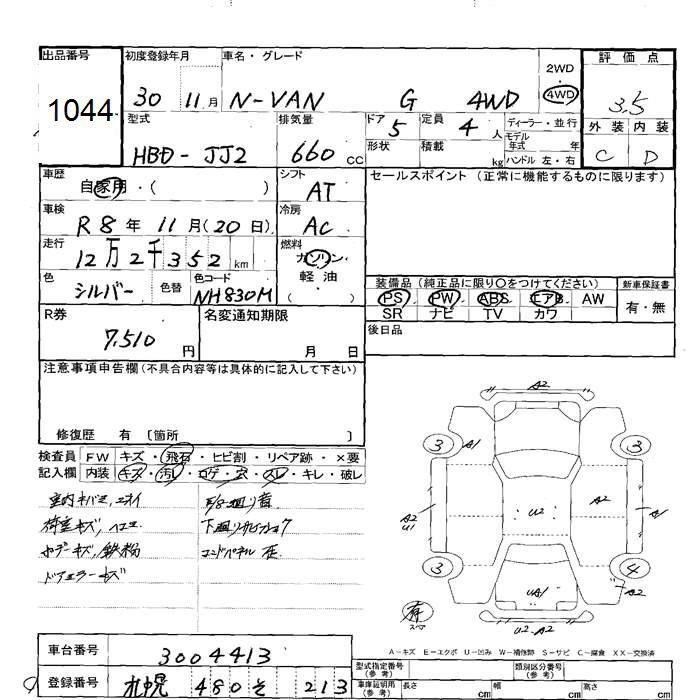 出品番号 初度登録年月 車名・グレード 2WD・4WD 評価点
1044 30 11月 N-VAN G 4WD 3.5
型式 排気量 ドア 定員 ディーラー・並行 外装 内装
HBD-JJ2 660cc 5 4人 モデル年式 年 C D
形状 積載 kg ハンドル 左・右
車歴 シフト セールスポイント (正常に機能するものに限ります)
自家用・( ) AT
車検 冷房
R8年11月(20日) AC
走行 燃料
12万2千352km ガソリン・軽油・( )
色 色替 色コード 装備品 (純正品に限り○をつけてください) 新車保証書
シルバー NH830M PS PW ABS エアB AW 有・無
SR ナビ TV カワ
R券 名変通知期限 後日品
7,510円 月 日
注意事項申告欄(不具合内容等は具体的に記入して下さい)
修復歴 有 〔箇所 〕
検査員 FW キズ・飛石・ヒビ割・リペア跡・×要
記入欄 内装 キズ・汚レ・コゲ・穴・スレ・キレ・破レ
荷室キズ、ヘコミ
ボデーキズ、鉄粉
A2
3 A1 3
A2 U1 U2 A2 A1
3 UA1 4
A2
有 スペア U2-A2
A-キズ E-エクボ U-凹み W-補修跡 S-サビ C-腐食 XX-交換済
車台番号 3004413
登録番号 札幌 480 そ 213
型式指定番号(参考) 類別区分番号(参考)
車庫証明用(参考) 長さ cm 幅 cm 高さ cm